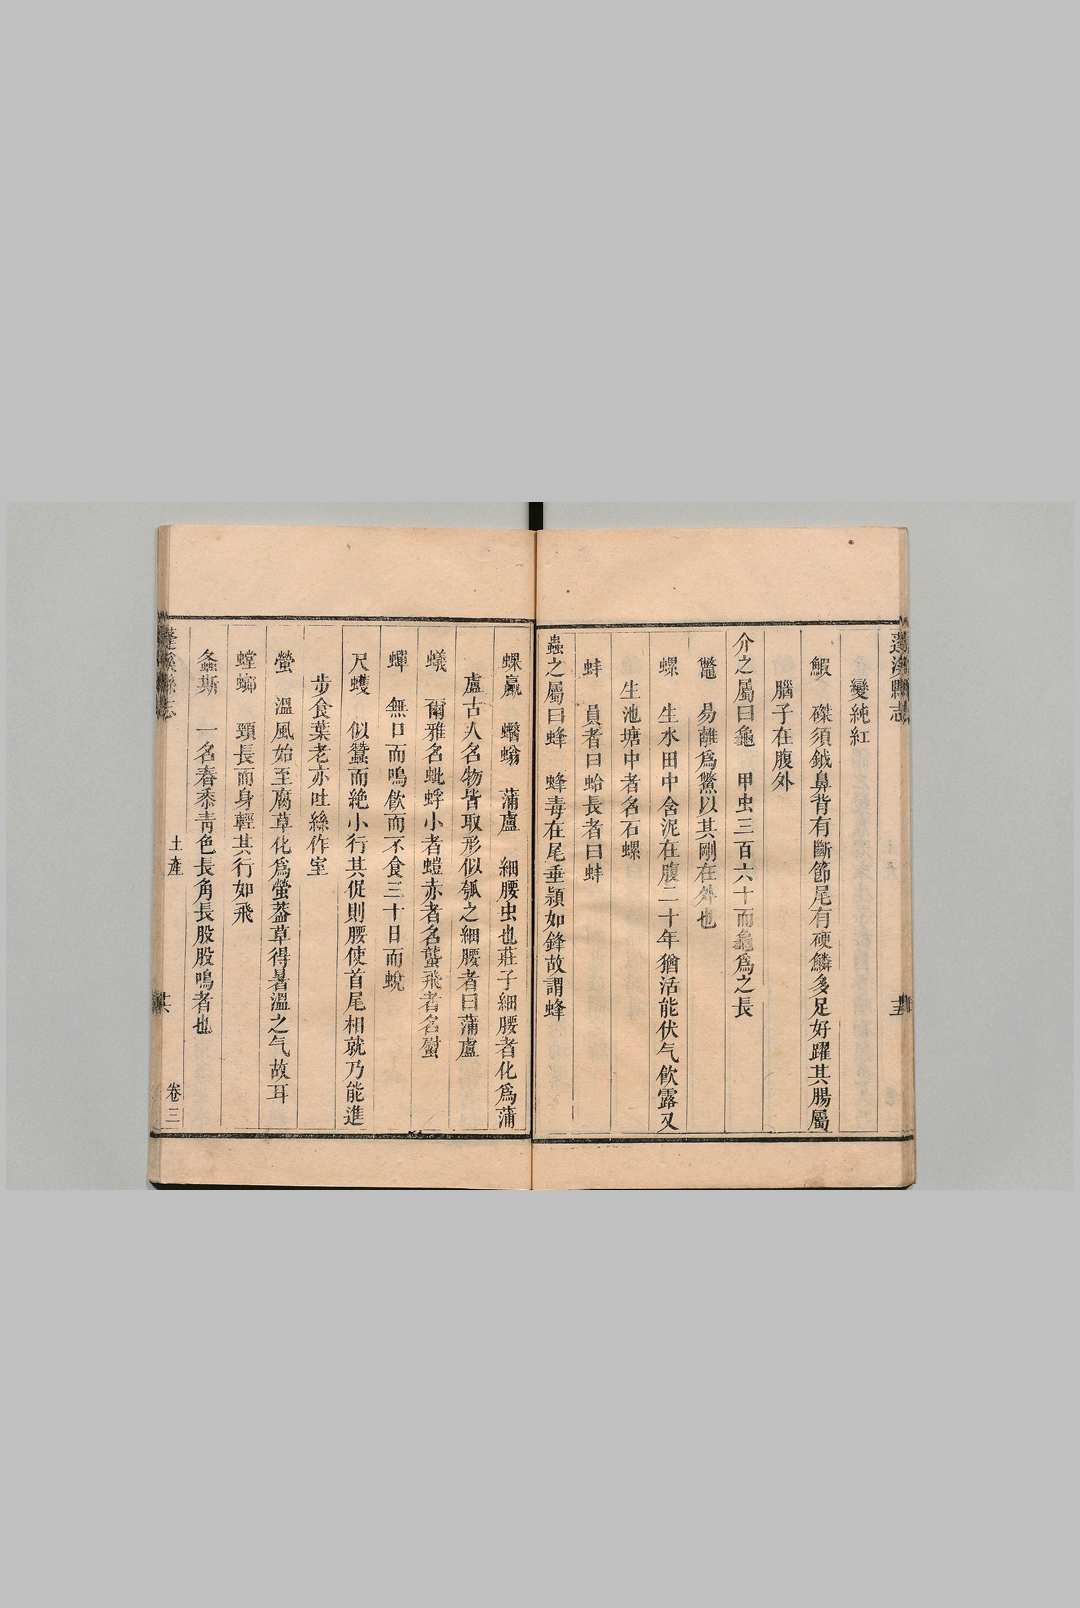 蓬溪縣志
變純紅
鰕　磔須鉞鼻背有斷節尾有硬鱗多足好躍其腸屬
腦子在腹外
介之屬曰龜　甲虫三百六十而龜爲之長
鼈　易離爲鱉以其剛在外也
螺　生水田中含泥在腹二十年猶活能伏气飲露又
生池塘中者名石螺
蚌　員者曰蛤長者曰蚌
蟲之屬曰蜂　蜂毒在尾垂穎如鋒故謂蜂
蜾蠃　蠮螉　蒲盧　細腰虫也莊子細腰者化爲蒲
盧古人名物皆取形似瓠之細腰者曰蒲盧
蟻　爾雅名蚍蜉小者螘赤者名蠪飛者名螱
蟬　無口而鳴飲而不食三十日而蛻
尺蠖　似蠶而絶小行其促則腰使首尾相就乃能進
步食葉老亦吐絲作室
螢　溫風始至腐草化爲螢葢草得暑溫之气故耳
螳螂　頸長而身輕其行如飛
螽斯　一名舂黍靑色長角長股股鳴者也
蓬溪縣志
土產
卷三